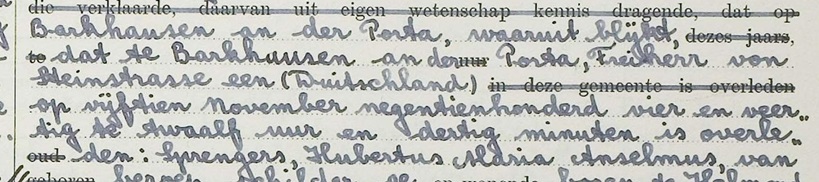 die verklaarde, daarvan uit eigen wetenschap kennis dragende, dat op
Barkhausen an der Porta, waaruit blijkt, dezes jaars,
te dat te Barkhausen an der uur Porta, Freiherr von
Steinstrasse een (Duitschland) in deze gemeente is overleden
op vijftien November negentienhonderd vier en veer„
tig te twaalf uur en dertig minuten is overle„
oud den: Sprengers, Hubertus Maria Anselmus, van
geboren beroep schilder en wonende